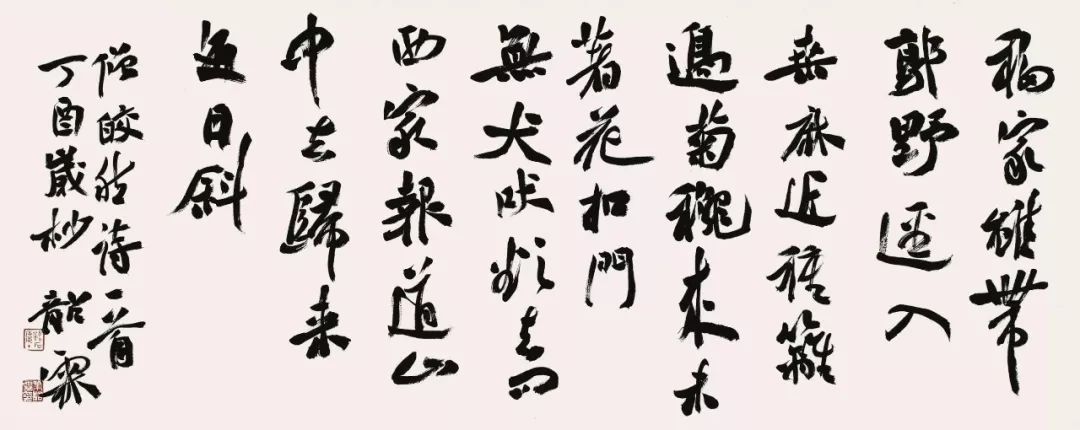 移家雖帶
郭野逕入
桒麻近種籬
邊菊穐来未
著花扣門
無犬吠欲去問
西家報道山
中去歸来
每日斜
僧皎然詩一首
丁酉歲杪 韶